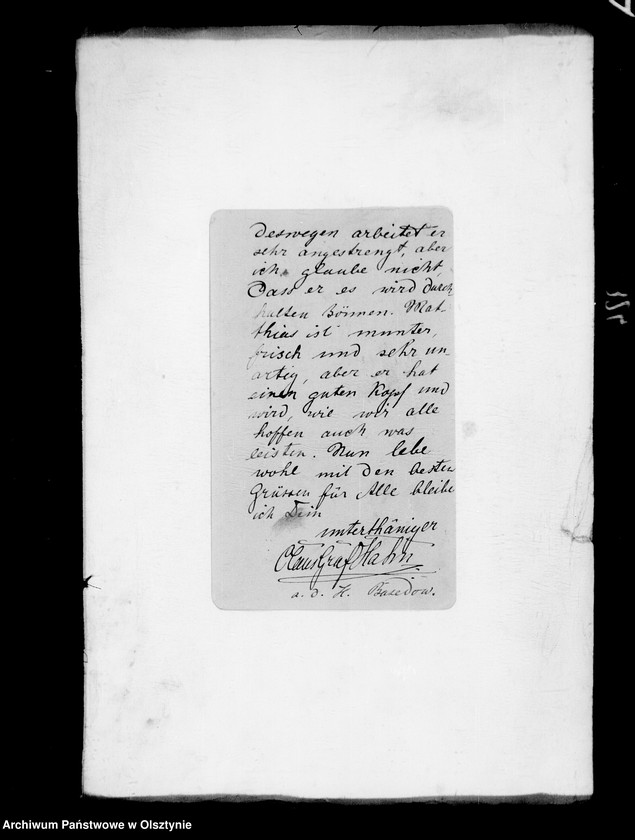 Deswegen arbeitet er
sehr angestrengt, aber
ich glaube nicht,
Dass er es wird durch
halten können. Mat-
thias ist munter,
frisch und sehr un
artig, aber er hat
einen guten Kopf und
wird, wie wir alle
hoffen auch was
leisten. Nun lebe
wohl mit den besten
Grüssen für Alle bleibe
ich Dein
unterthäniger
Claus Graf Hahn
a. d. H. Basedow.
324
Archiwum Państwowe w Olsztynie